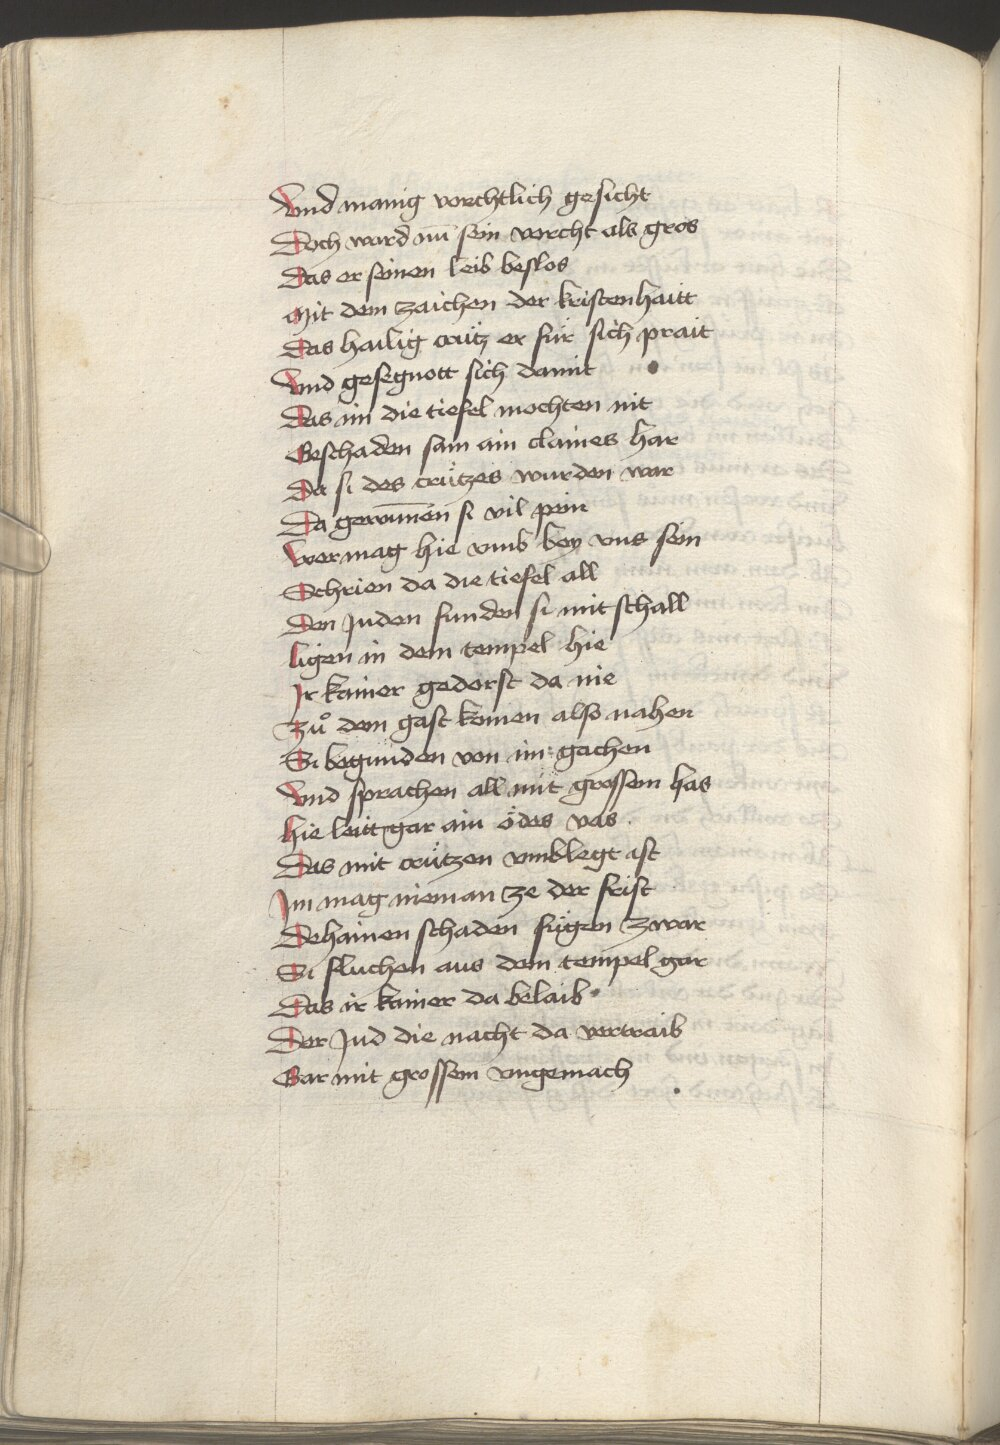 Vnd manig vorchtlich gesicht
Doch ward nu̅ sein vorcht als gros
Das er seinen leib beslos
Mit dem zaichen der kristenhaitt
Das hailig crütz er für sich prait
Vnd gesegnott sich damit
Das im die tiefel mochten nit
Geschaden sam ain claines har
Da si des crützes wurden war
Da gewu̅nen si vil pein
Wer mag hie vmb bey vns sein
Schrien da die tiefel all
Den Juden funden si mit schall
ligen in dem tempel hie
Ir kainer gedorst da nie
Zuͦ dem gast komen also nahen
Si begunden von im gachen
Vnd sprachen all mit grossem has
hie leitt gar ain ödes vas
Das mit crützen vmblegt ist
Im mag nieman ze der frist
Dehainen schaden fügen zwar
Si fluchen aus dem tempel gar
Das ir kainer da belaib
Der Jud die nacht da vertraib
Gar mit grossem vngemach